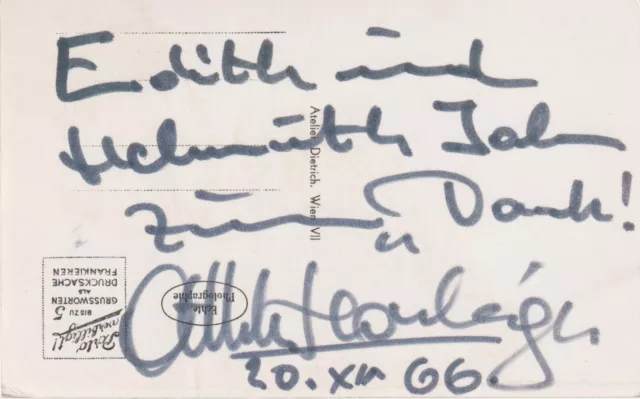 Edith und
Helmuth Jahn
zum Dank!
20. XII 66.
Atelier Dietrich, Wien VII
Echte
Photographie
Porto
verbilligt!
BIS ZU 5
GRUSSWORTEN
ALS
DRUCKSACHE
FRANKIEREN